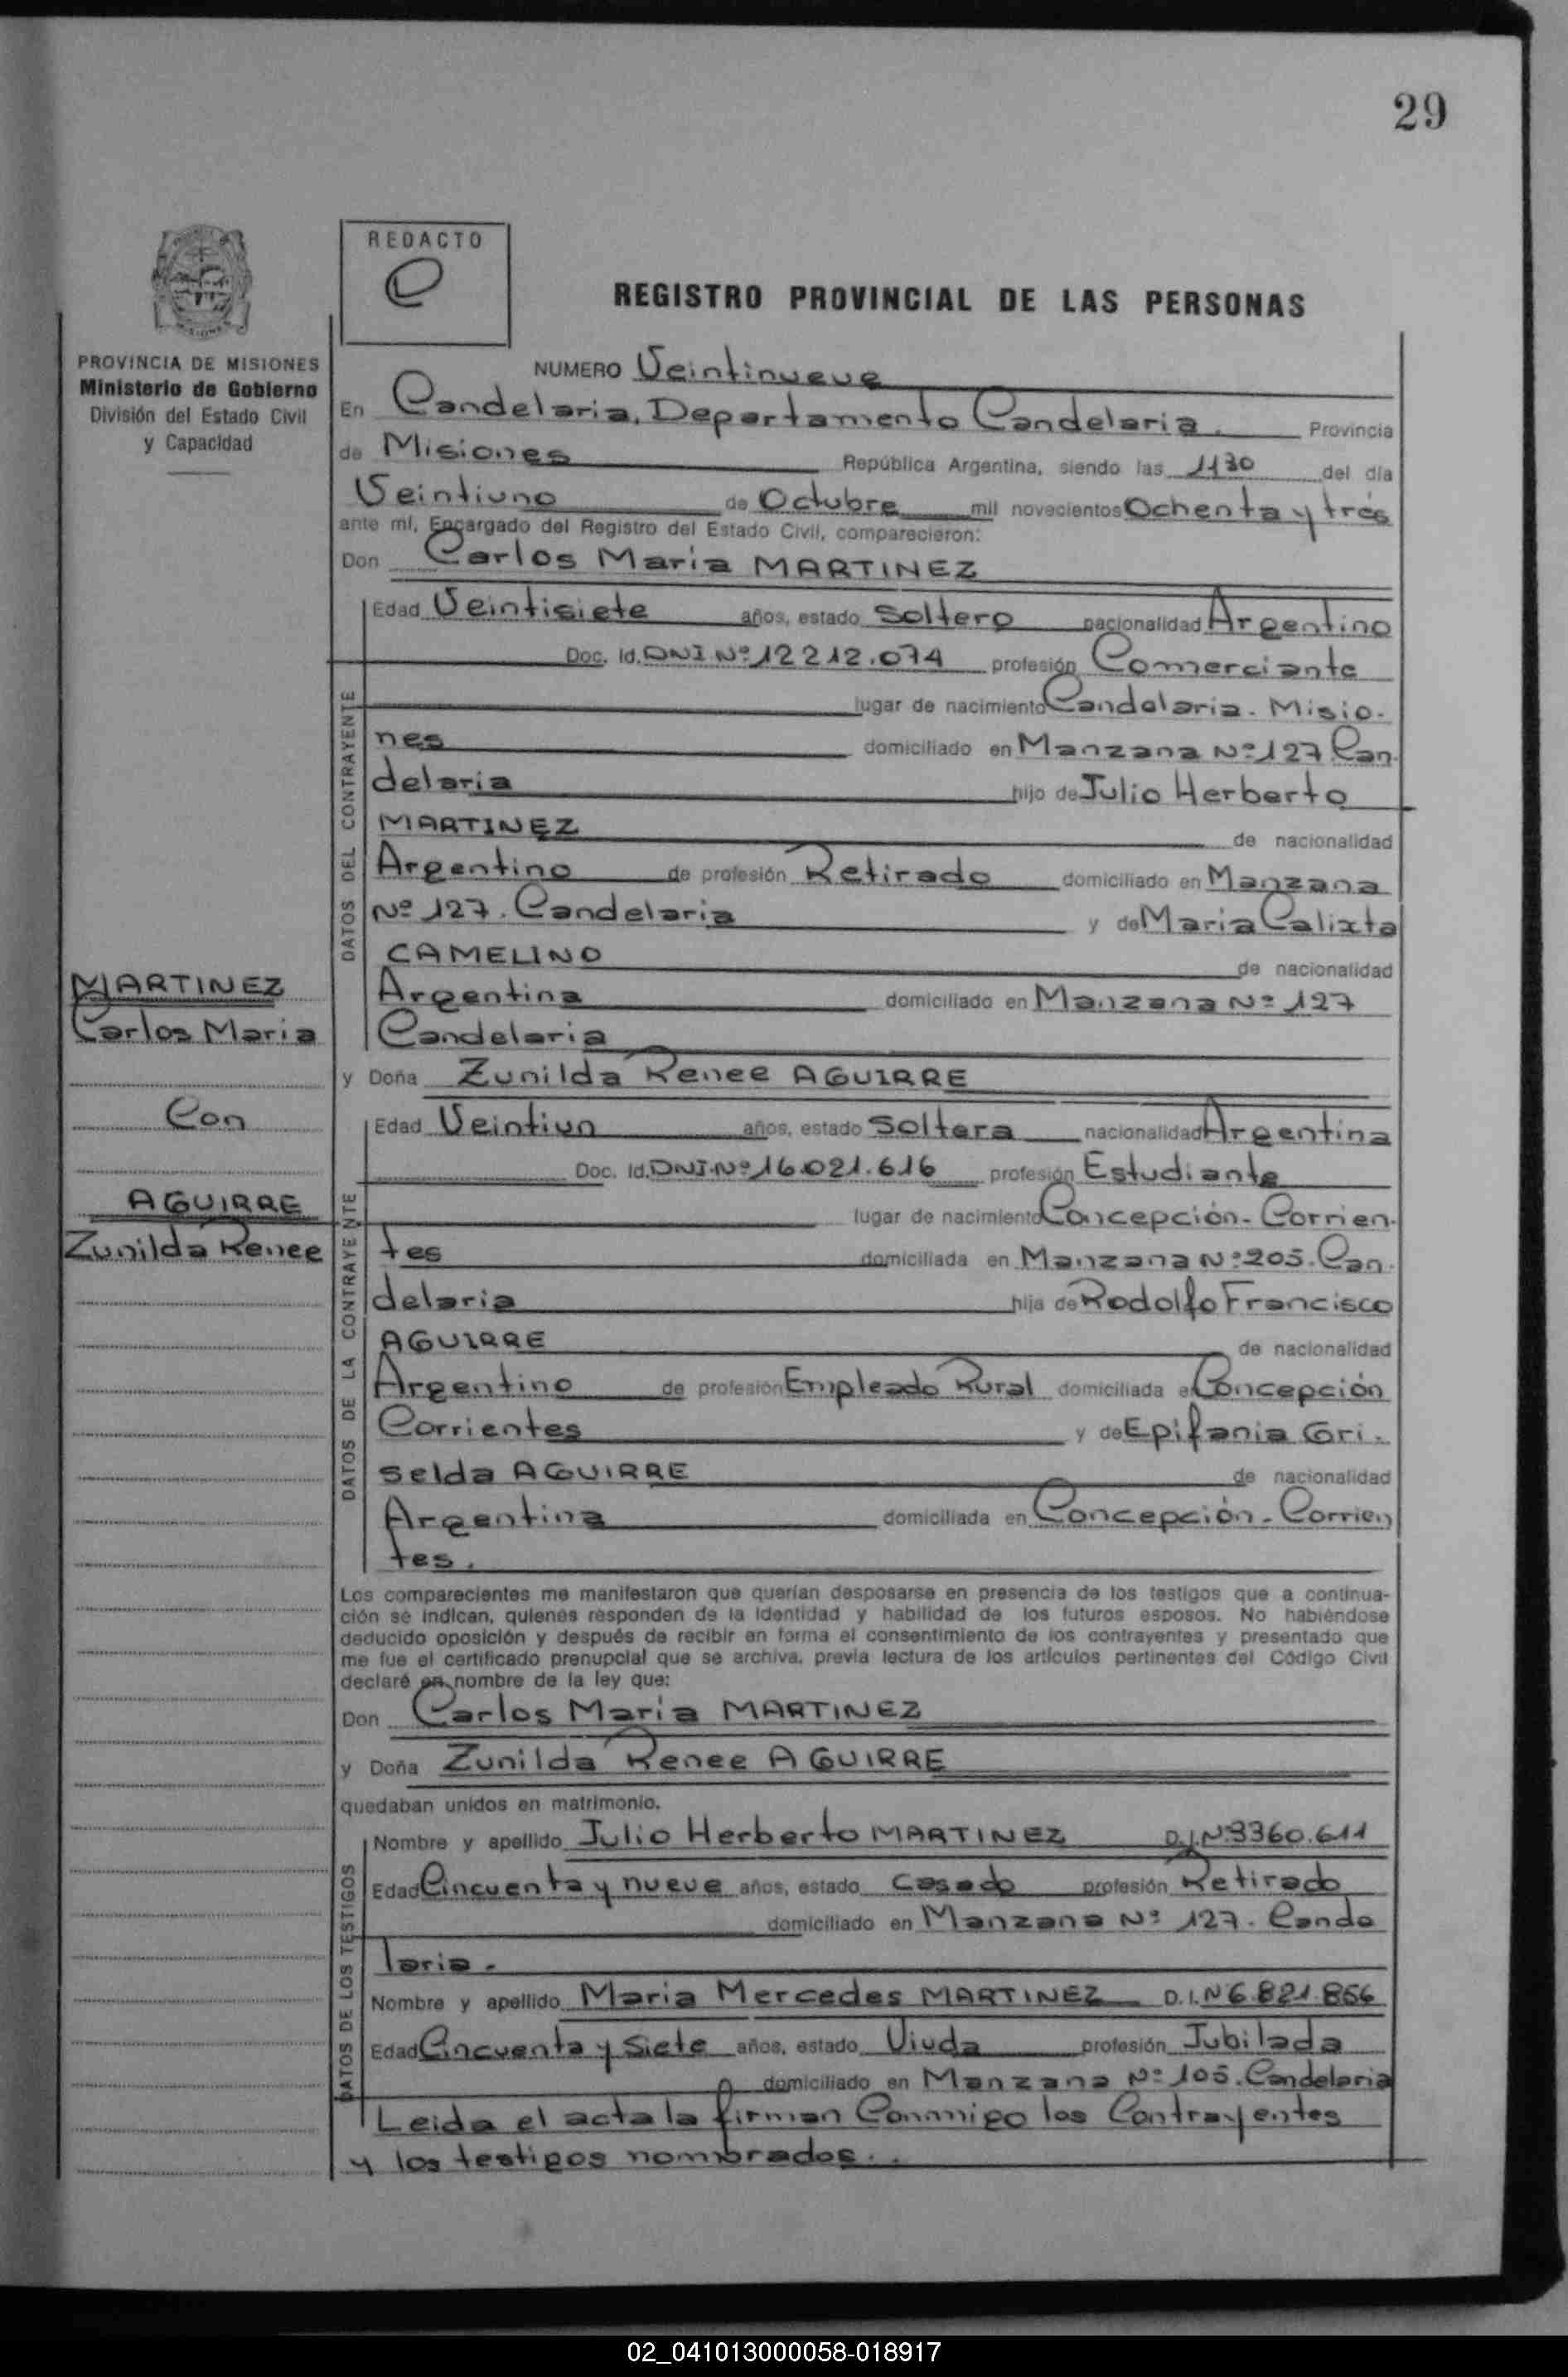 29
REDACTO
REGISTRO PROVINCIAL DE LAS PERSONAS
PROVINCIA DE MISIONES
Ministerio de Gobierno
División del Estado Civil
y Capacidad
NUMERO Veintinueve
En Candelaria, Departamento Candelaria. Provincia
de Misiones República Argentina, siendo las 1130 del día
Veintiuno de Octubre mil novecientos Ochenta y tres
ante mí, Encargado del Registro del Estado Civil, comparecieron:
Don Carlos Maria MARTINEZ
DATOS DEL CONTRAYENTE
Edad Veintisiete años, estado Soltero nacionalidad Argentino
Doc. Id. DNI Nº 12212.074 profesión Comerciante
lugar de nacimiento Candelaria. Misio-
nes domiciliado en Manzana Nº 127 Can-
delaria hijo de Julio Herberto
MARTINEZ de nacionalidad
Argentino de profesión Retirado domiciliado en Manzana
Nº 127. Candelaria y de Maria Calixta
CAMELINO de nacionalidad
Argentina domiciliado en Manzana Nº 127
Candelaria
MARTINEZ
Carlos Maria
Con
AGUIRRE
Zunilda Renee
y Doña Zunilda Renee AGUIRRE
DATOS DE LA CONTRAYENTE
Edad Veintiun años, estado Soltera nacionalidad Argentina
Doc. Id. DNI. Nº 16.021.616 profesión Estudiante
lugar de nacimiento Concepción - Corrien-
tes domiciliada en Manzana Nº 205. Can-
delaria hija de Rodolfo Francisco
AGUIRRE de nacionalidad
Argentino de profesión Empleado Rural domiciliada en Concepción
Corrientes y de Epifania Gri-
selda AGUIRRE de nacionalidad
Argentina domiciliada en Concepción - Corrien
tes.
Los comparecientes me manifestaron que querían desposarse en presencia de los testigos que a continua-
ción se indican, quienes responden de la identidad y habilidad de los futuros esposos. No habiéndose
deducido oposición y después de recibir en forma el consentimiento de los contrayentes y presentado que
me fue el certificado prenupcial que se archiva, previa lectura de los artículos pertinentes del Código Civil
declaré en nombre de la ley que:
Don Carlos Maria MARTINEZ
y Doña Zunilda Renee AGUIRRE
quedaban unidos en matrimonio.
DATOS DE LOS TESTIGOS
Nombre y apellido Julio Herberto MARTINEZ D.I.Nº 3360.611
Edad Cincuenta y nueve años, estado Casado profesión Retirado
domiciliado en Manzana Nº 127. Cande
laria.
Nombre y apellido Maria Mercedes MARTINEZ D.I.Nº 6.821.856
Edad Cincuenta y Siete años, estado Viuda profesión Jubilada
domiciliado en Manzana Nº 105. Candelaria
Leida el acta la firman Conmigo los Contrayentes
y los testigos nombrados.
02_041013000058-018917